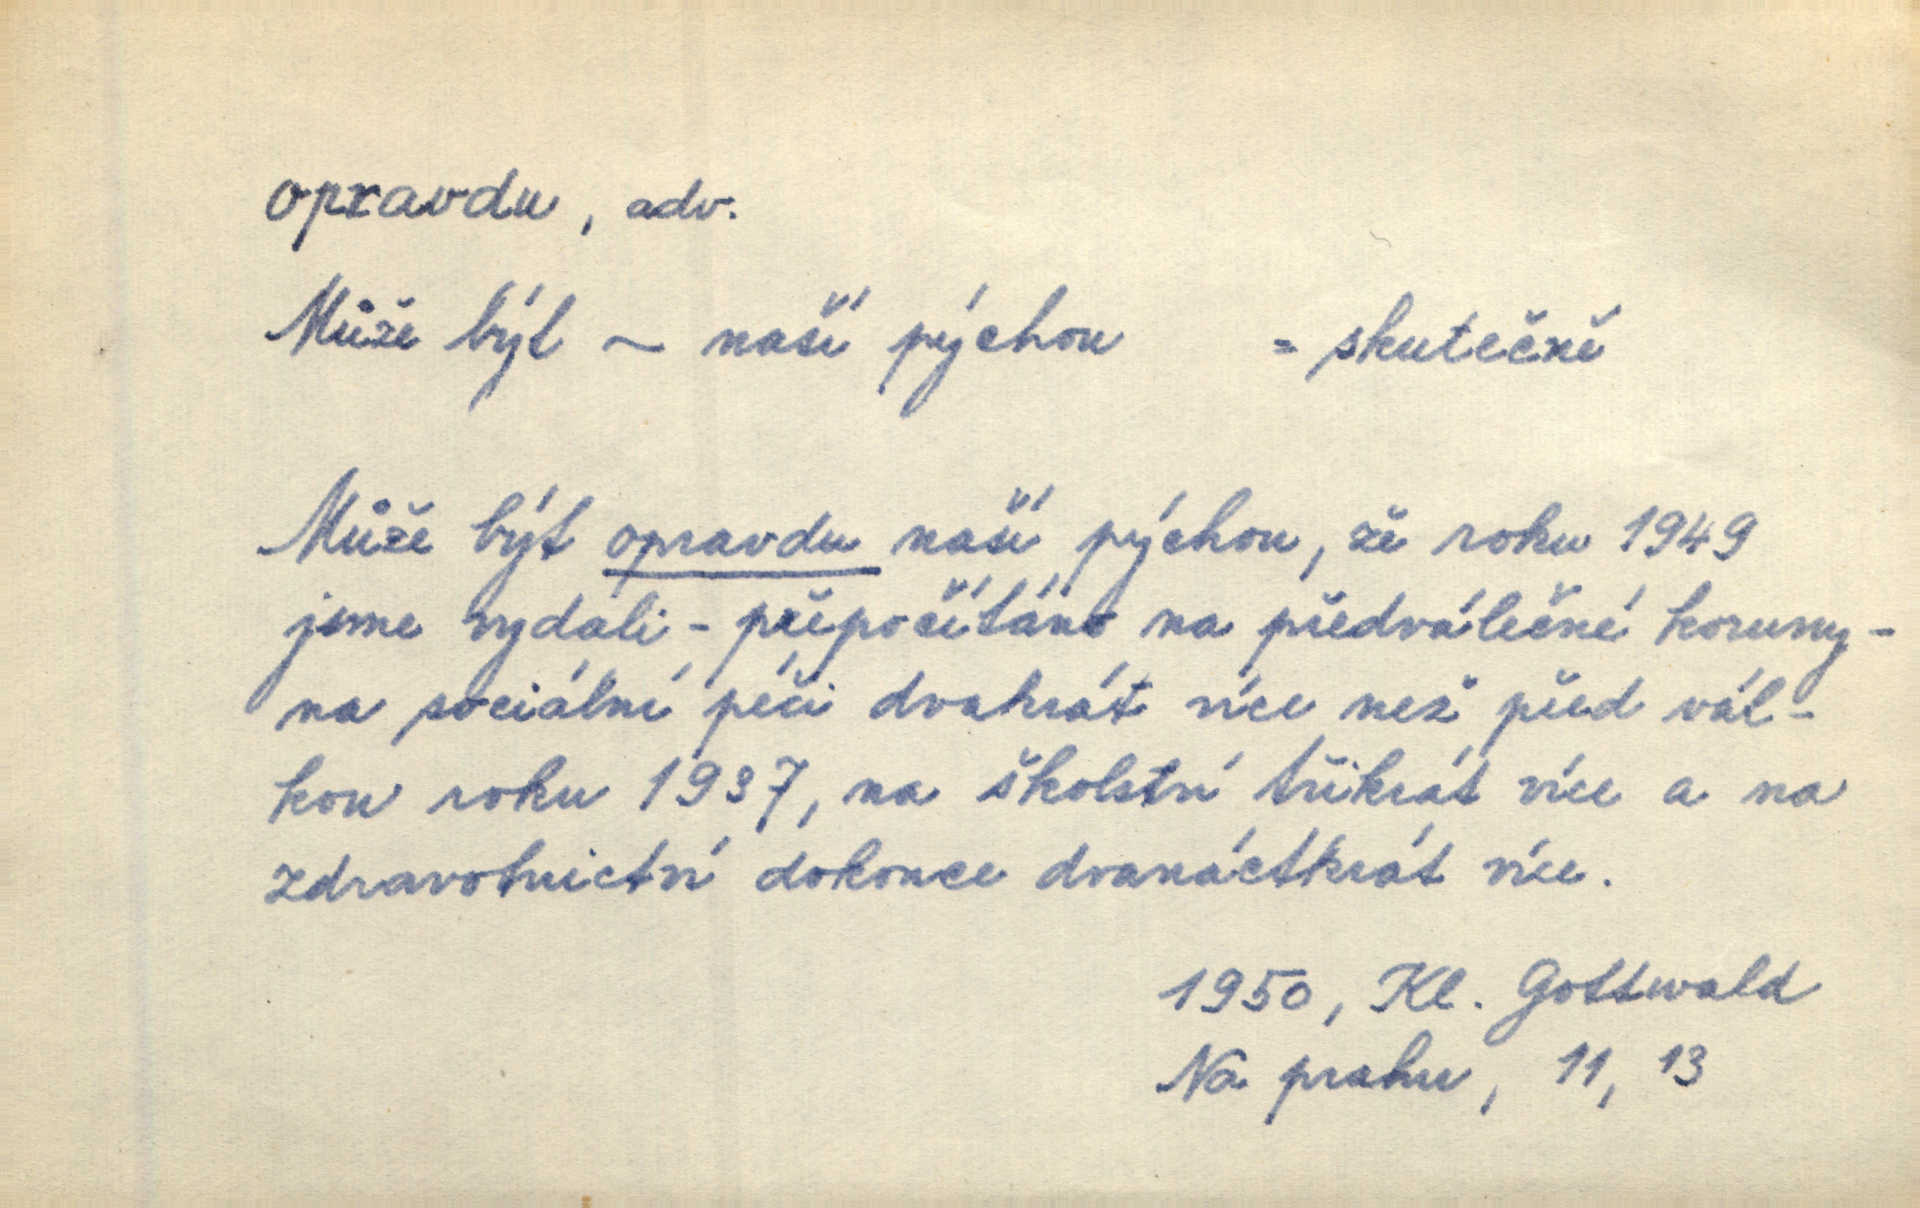 opravdu, adv.
Může být ~ naší pýchou = skutečně
Může být opravdu naší pýchou, že roku 1949
jsme vydali - přepočítáno na předválečné koruny -
na sociální péči dvakrát více než před vál-
kou roku 1937, na školství třikrát více a na
zdravotnictví dokonce dvanáctkrát více.
1950, Kl. Gottwald
Na prahu, 11, 13